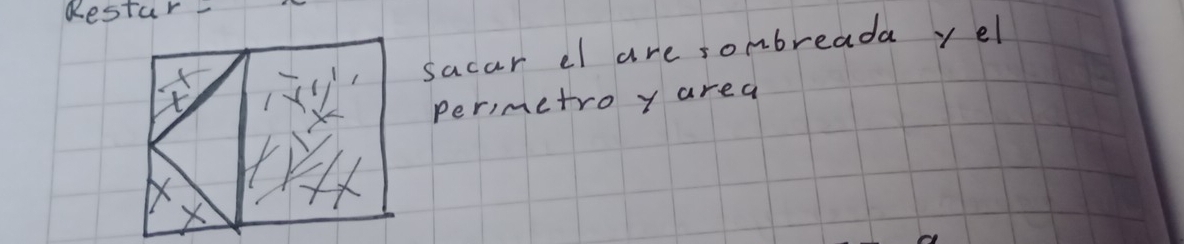 Restar =
sacar el are sombreada y el
perimetro y area